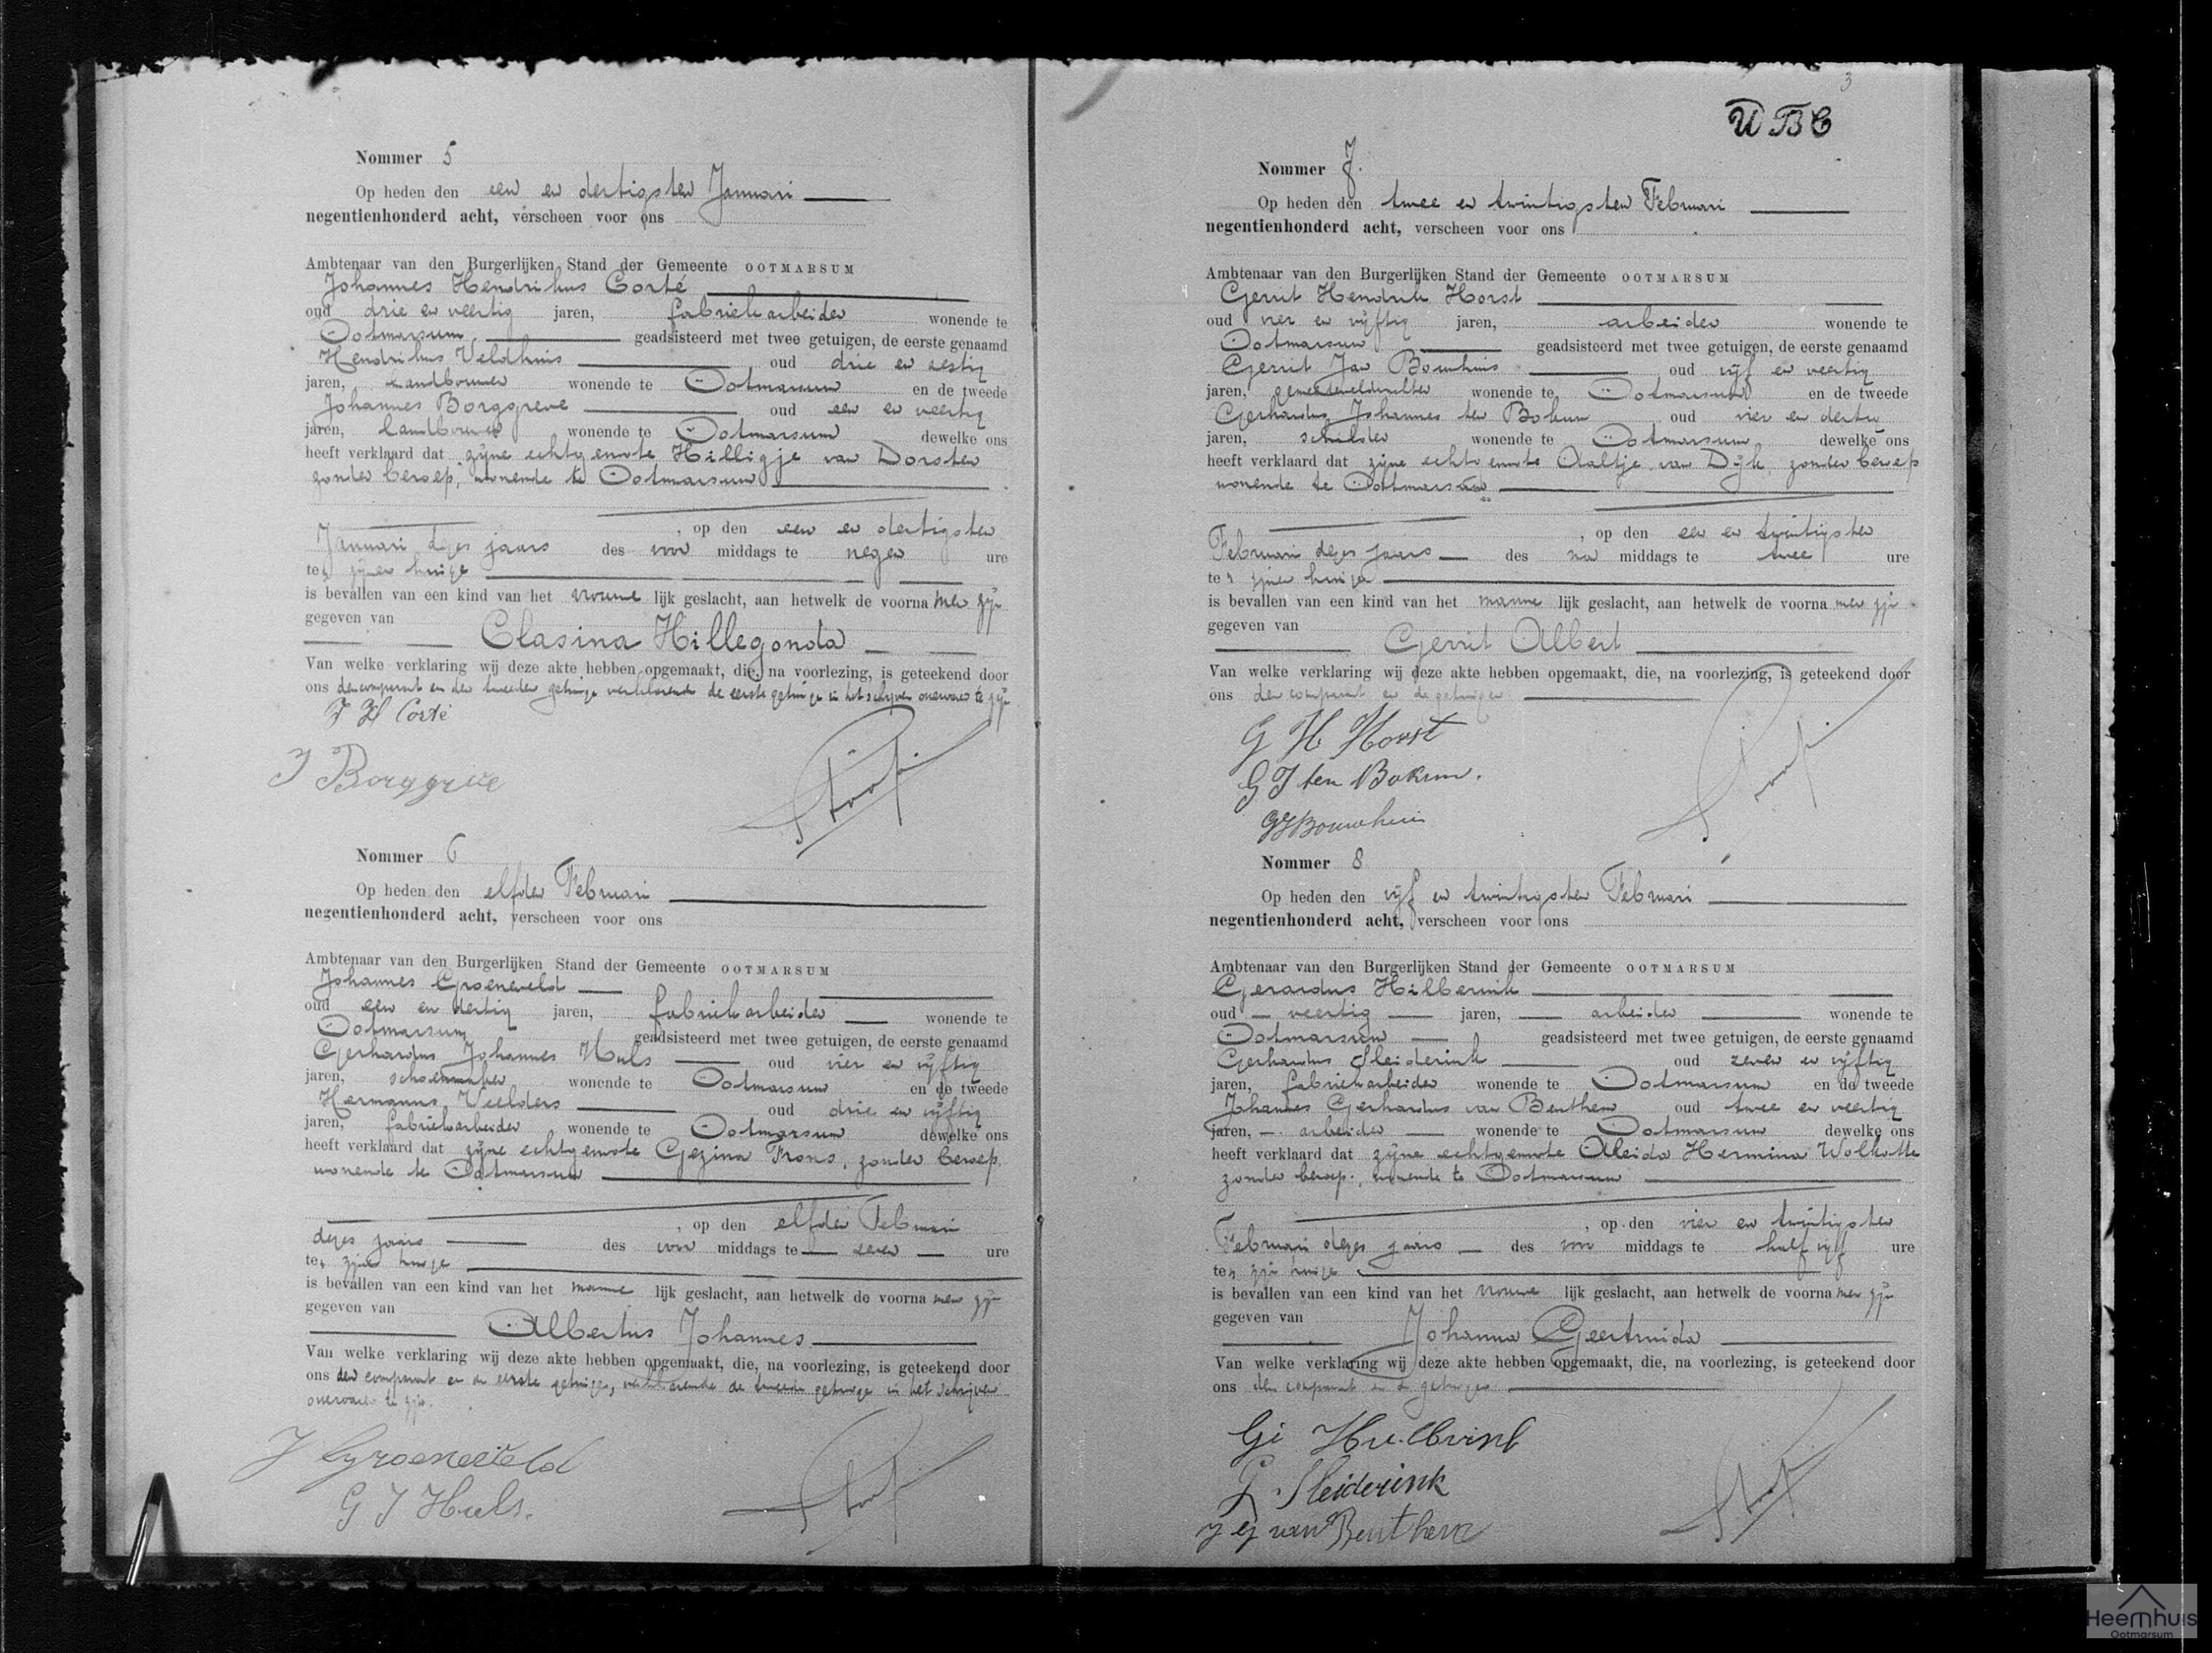 Nommer 5
Op heden den een en dertigsten Januari
negentienhonderd acht, verscheen voor ons
Ambtenaar van den Burgerlijken Stand der Gemeente OOTMARSUM
Johannes Hendrikus Corté
oud drie en veertig jaren, fabriekarbeider wonende te
Ootmarsum geadsisteerd met twee getuigen, de eerste genaamd
Hendrikus Veldhuis oud drie en zestig
jaren, landbouwer wonende te Ootmarsum en de tweede
Johannes Borggreve oud een en veertig
jaren, landbouwer wonende te Ootmarsum dewelke ons
heeft verklaard dat zijne echtgenoote Hilligje van Dorsten
zonder beroep, wonende te Ootmarsum
, op den een en dertigsten
Januari dezes jaars des voor middags te negen ure
te zijnen huize
is bevallen van een kind van het vrouwe lijk geslacht, aan hetwelk de voorna men zijn
gegeven van
Clasina Hillegonda
Van welke verklaring wij deze akte hebben opgemaakt, die, na voorlezing, is geteekend door
ons den comparant en den tweeden getuige verklarende de eerste getuige in het schrijven onervaren te zijn
J H Corté
J Borggreve
Nommer 6
Op heden den elfden Februari
negentienhonderd acht, verscheen voor ons
Ambtenaar van den Burgerlijken Stand der Gemeente OOTMARSUM
Johannes Groeneveld
oud een en dertig jaren, fabriekarbeider wonende te
Ootmarsum geadsisteerd met twee getuigen, de eerste genaamd
Gerhardus Johannes Huls oud vier en vijftig
jaren, schoenmaker wonende te Ootmarsum en de tweede
Hermannus Veelders oud drie en vijftig
jaren, fabriekarbeider wonende te Ootmarsum dewelke ons
heeft verklaard dat zijne echtgenoote Gezina Frons, zonder beroep,
wonende te Ootmarsum
, op den elfden Februari
dezes jaars des voor middags te zeven ure
te zijnen huize
is bevallen van een kind van het manne lijk geslacht, aan hetwelk de voorna men zijn
gegeven van
Albertus Johannes
Van welke verklaring wij deze akte hebben opgemaakt, die, na voorlezing, is geteekend door
ons den comparant en de eerste getuige, verklarende de tweede getuige in het schrijven
onervaren te zijn.
J Groeneveld
G J Huls.
3
UBC
Nommer 7.
Op heden den twee en twintigsten Februari
negentienhonderd acht, verscheen voor ons
Ambtenaar van den Burgerlijken Stand der Gemeente OOTMARSUM
Gerrit Hendrik Horst
oud vier en vijftig jaren, arbeider wonende te
Ootmarsum geadsisteerd met twee getuigen, de eerste genaamd
Gerrit Jan Bouwhuis oud vijf en veertig
jaren, gemeenteveldwachter wonende te Ootmarsum en de tweede
Gerhardus Johannes ten Bokum oud vier en dertig
jaren, schilder wonende te Ootmarsum dewelke ons
heeft verklaard dat zijne echtgenoote Aaltje van Dijk, zonder beroep
wonende te Ootmarsum
, op den een en twintigsten
Februari dezes jaars des na middags te twee ure
te zijnen huize
is bevallen van een kind van het manne lijk geslacht, aan hetwelk de voorna men zijn
gegeven van
Gerrit Albert
Van welke verklaring wij deze akte hebben opgemaakt, die, na voorlezing, is geteekend door
ons den comparant en de getuigen
G H Horst
G J ten Bokum.
GJ Bouwhuis
Nommer 8
Op heden den vijf en twintigsten Februari
negentienhonderd acht, verscheen voor ons
Ambtenaar van den Burgerlijken Stand der Gemeente OOTMARSUM
Gerardus Hilberink
oud veertig jaren, arbeider wonende te
Ootmarsum geadsisteerd met twee getuigen, de eerste genaamd
Gerhardus Sleiderink oud zeven en vijftig
jaren, fabriekarbeider wonende te Ootmarsum en de tweede
Johannes Gerhardus van Benthem oud twee en veertig
jaren, arbeider wonende te Ootmarsum dewelke ons
heeft verklaard dat zijne echtgenoote Aleida Hermina Wolkotte
zonder beroep, wonende te Ootmarsum
, op den vier en twintigsten
Februari dezes jaars des voor middags te half vijf ure
te zijnen huize
is bevallen van een kind van het vrouwe lijk geslacht, aan hetwelk de voorna men zijn
gegeven van
Johanna Geertruida
Van welke verklaring wij deze akte hebben opgemaakt, die, na voorlezing, is geteekend door
ons den comparant en de getuigen
G Sleiderink
J G van Benthem
Heemhuis
Ootmarsum